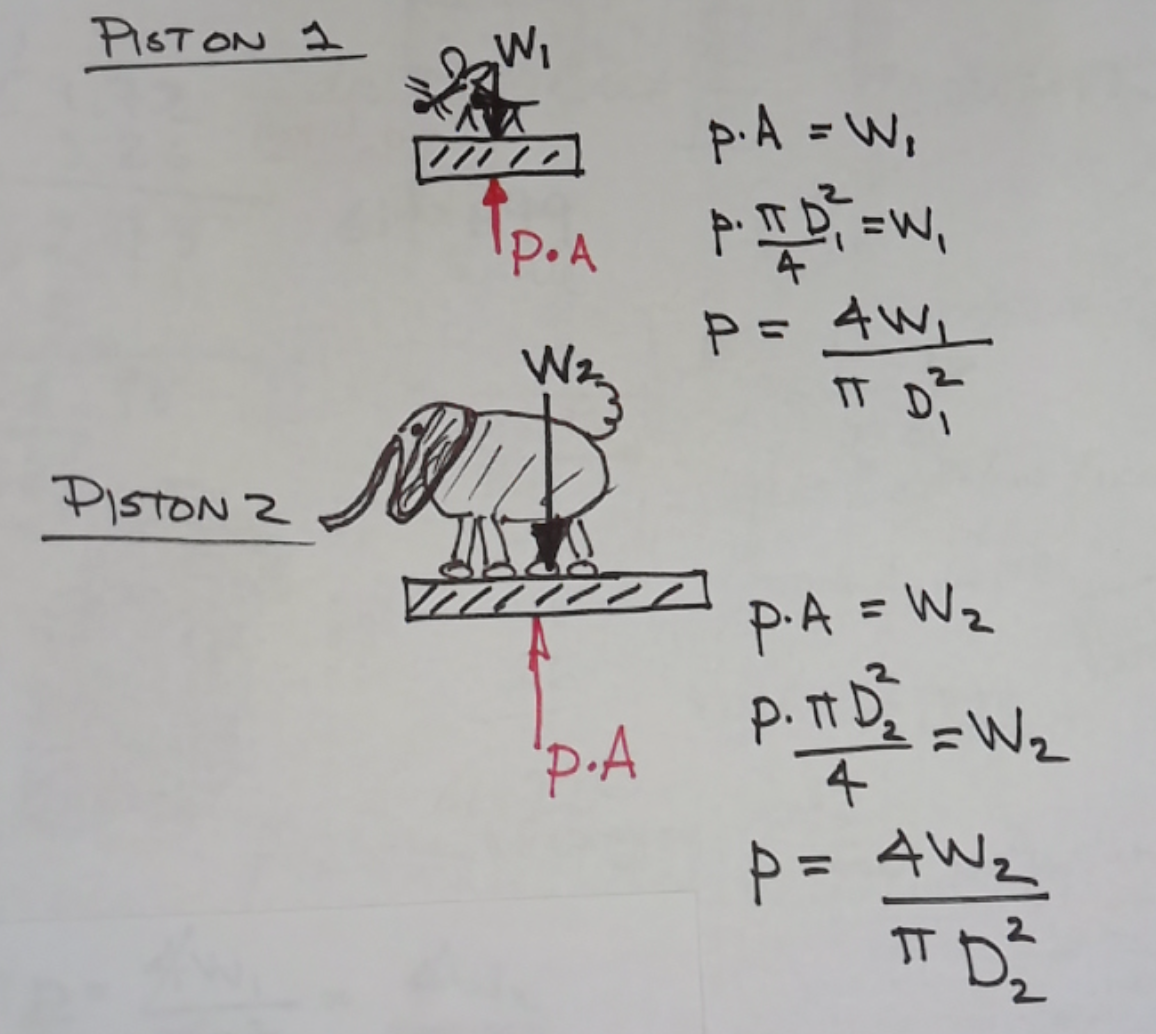 PISTON 1
W₁
p.A
p.A = W₁
p. π D₁² / 4 = W₁
P = 4 W₁ / π D₁²
W2
PISTON 2
p.A
p.A = W₂
p. π D₂² / 4 = W₂
p = 4 W₂ / π D₂²